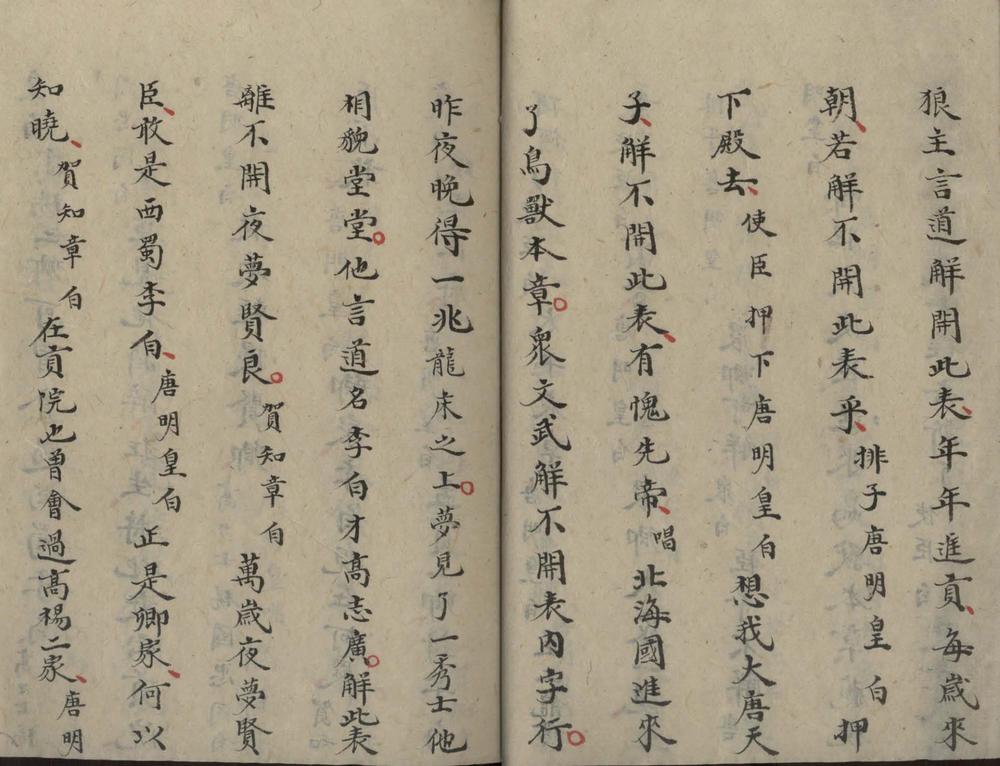 狼主言道解開此表、年年進貢、每歲來
朝、若解不開此表乎、排子唐明皇白押
下殿去、使臣押下唐明皇白想我大唐天
子、解不開此表、有愧先帝、唱北海國進來
了鳥獸本章。衆文武解不開表內字行。
昨夜晚得一兆龍床之上。夢見了一秀士他
相貌堂堂。他言道名李白才高志廣。解此表
離不開夜夢賢良。賀知章白萬歲夜夢賢
臣、敢是西蜀李白、唐明皇白正是卿家、何以
知曉、賀知章白在貢院也曾會過高楊二家、唐明